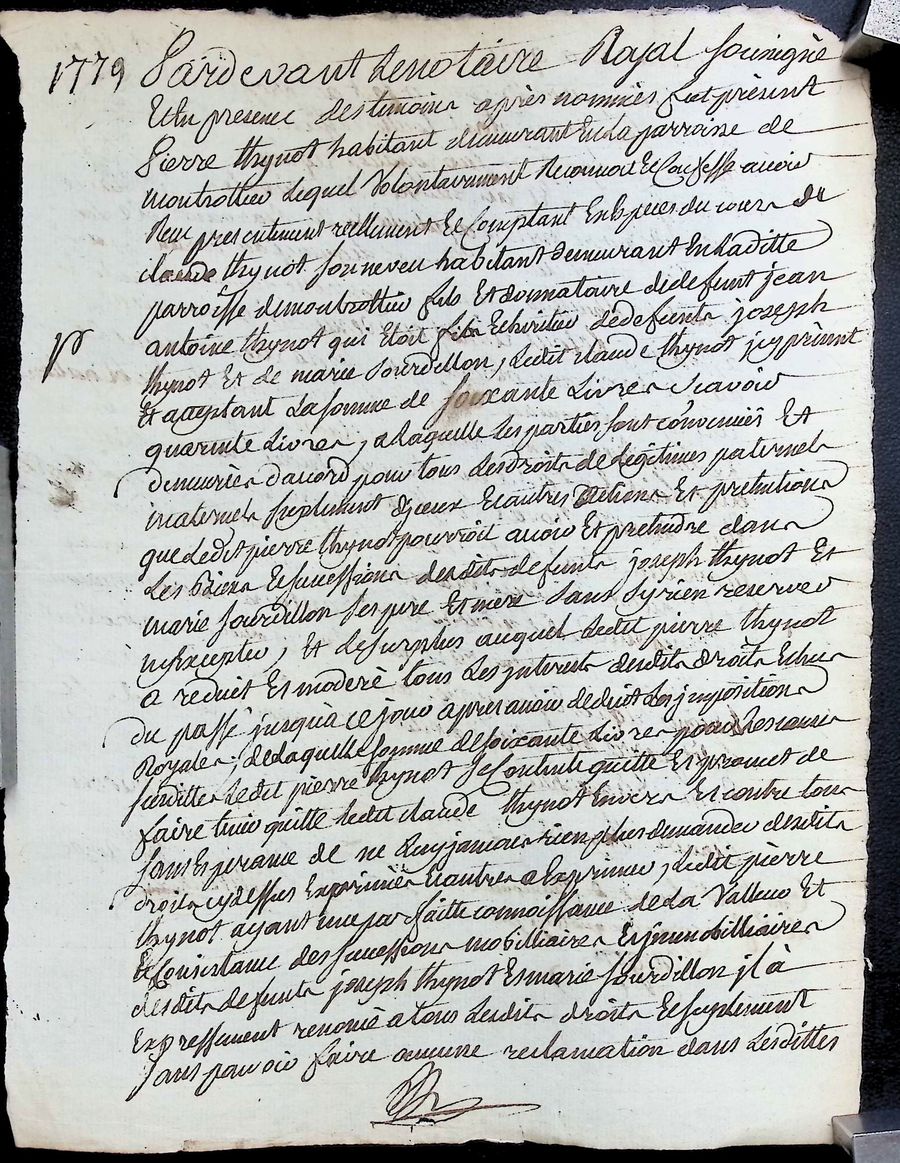 1779 Pardevant Le notaire Royal soussigné
Et En presence des temoins après nommés fut présent
Pierre thynot habitant demeurant En La parroisse de
montrottier Lequel Volontairement Reconnoit Et Confesse avoir
Reçu presentement reellement Et Comptant En Especes du cours de
claude thynot son neveu habitant demeurant En Laditte
parroisse de montrottier fils Et donnataire de defunt jean
antoine thynot qui Etoit fils Et heritier de defunts joseph
thynot Et de marie Sourdillon, Ledit claude thynot jcy présent
Et acceptant La somme de soixante Livres scavoir
quarente Livres, a laquelle Les parties sont convenües Et
demeurées d'acord pour tous Les droits de Légitimes paternels
maternels suplement d'jceux Et autres actions Et pretentions
que Ledit pierre thynot pourroit avoir Et pretendre dans
Les biens Et successions desdits defunts joseph thynot Et
marie Sourdillon ses pere Et mere sans d'y rien reserver
ny Excepter, Et Le surplus auquel Ledit pierre thynot
a reduit Et moderé tous Les jnterests desdits droits Echus
du passé jusqu'a ce jour apres avoir deduit Les jmpositions
Royales, de Laquelle somme de soixante Livres pour Les causes
susdittes Ledit pierre thynot se Contente quitte Et promet de
faire tenir quitte Ledit claude thynot Envers Et contre tous
sans Esperance de ne Luy jamais rien plus demander desdits
droits cy dessus Exprimés Et autres a Exprimer, Ledit pierre
thynot ayant une parfaitte connoissance de La Valleur Et
Consistance des successions mobilliaires Et jmmobilliaires
desdits defunts joseph thynot Et marie Sourdillon jl a
Expressement renoncé a tous Lesdits droits Et suplement
sans pouvoir faire aucune reclamation dans Lesdittes